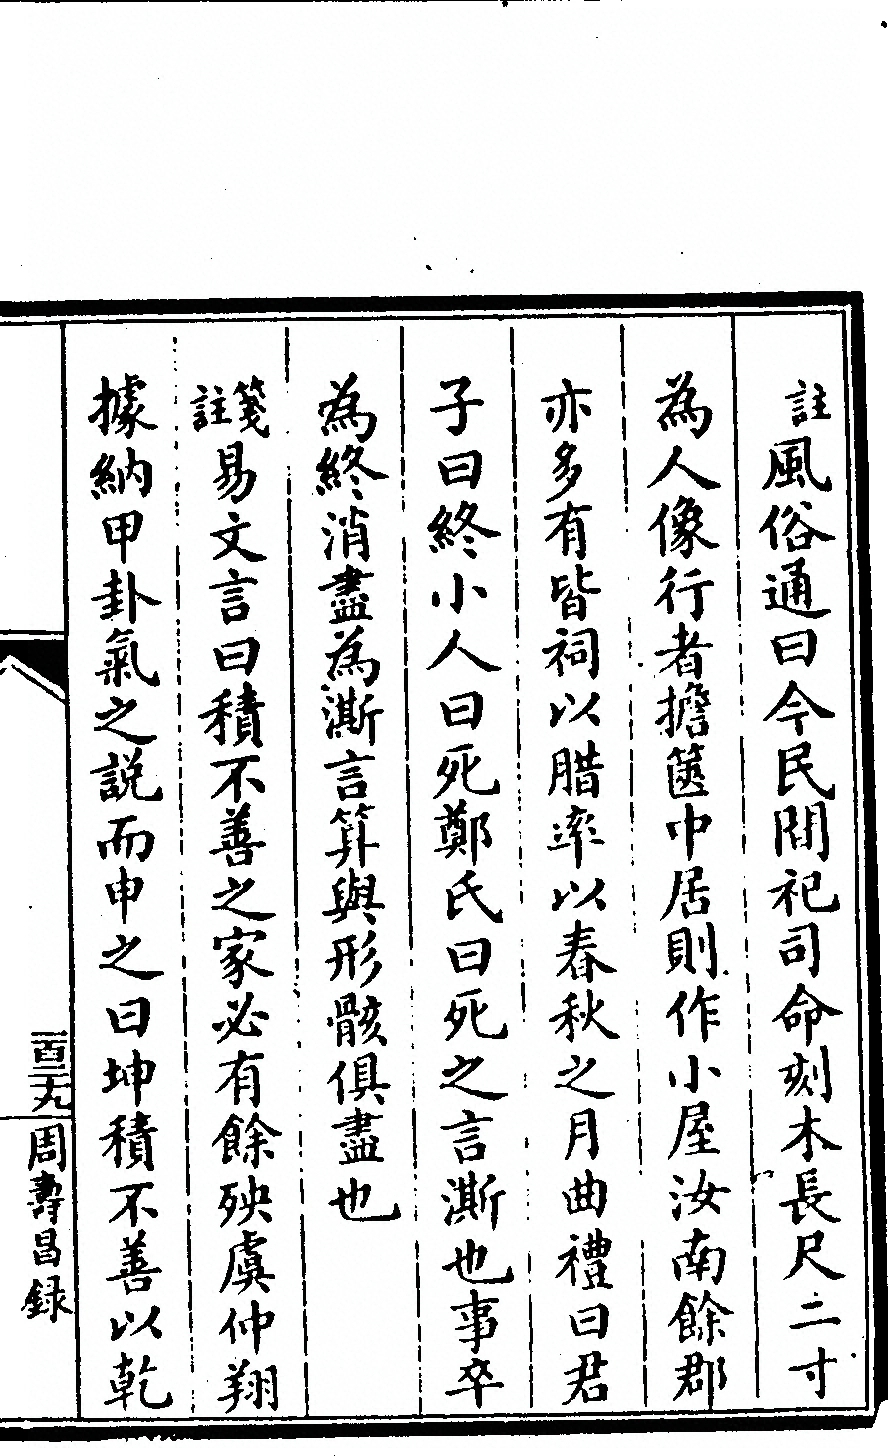 註風俗通曰今民間祀司命刻木長尺二寸
為人像行者擔篋中居則作小屋汝南餘郡
亦多有皆祠以腊率以春秋之月曲禮曰君
子曰終小人曰死鄭氏曰死之言澌也事卒
為終消盡為澌言算與形骸俱盡也
箋註易文言曰積不善之家必有餘殃虞仲翔
據納甲卦氣之說而申之曰坤積不善以乾
一百二十九
周壽昌録